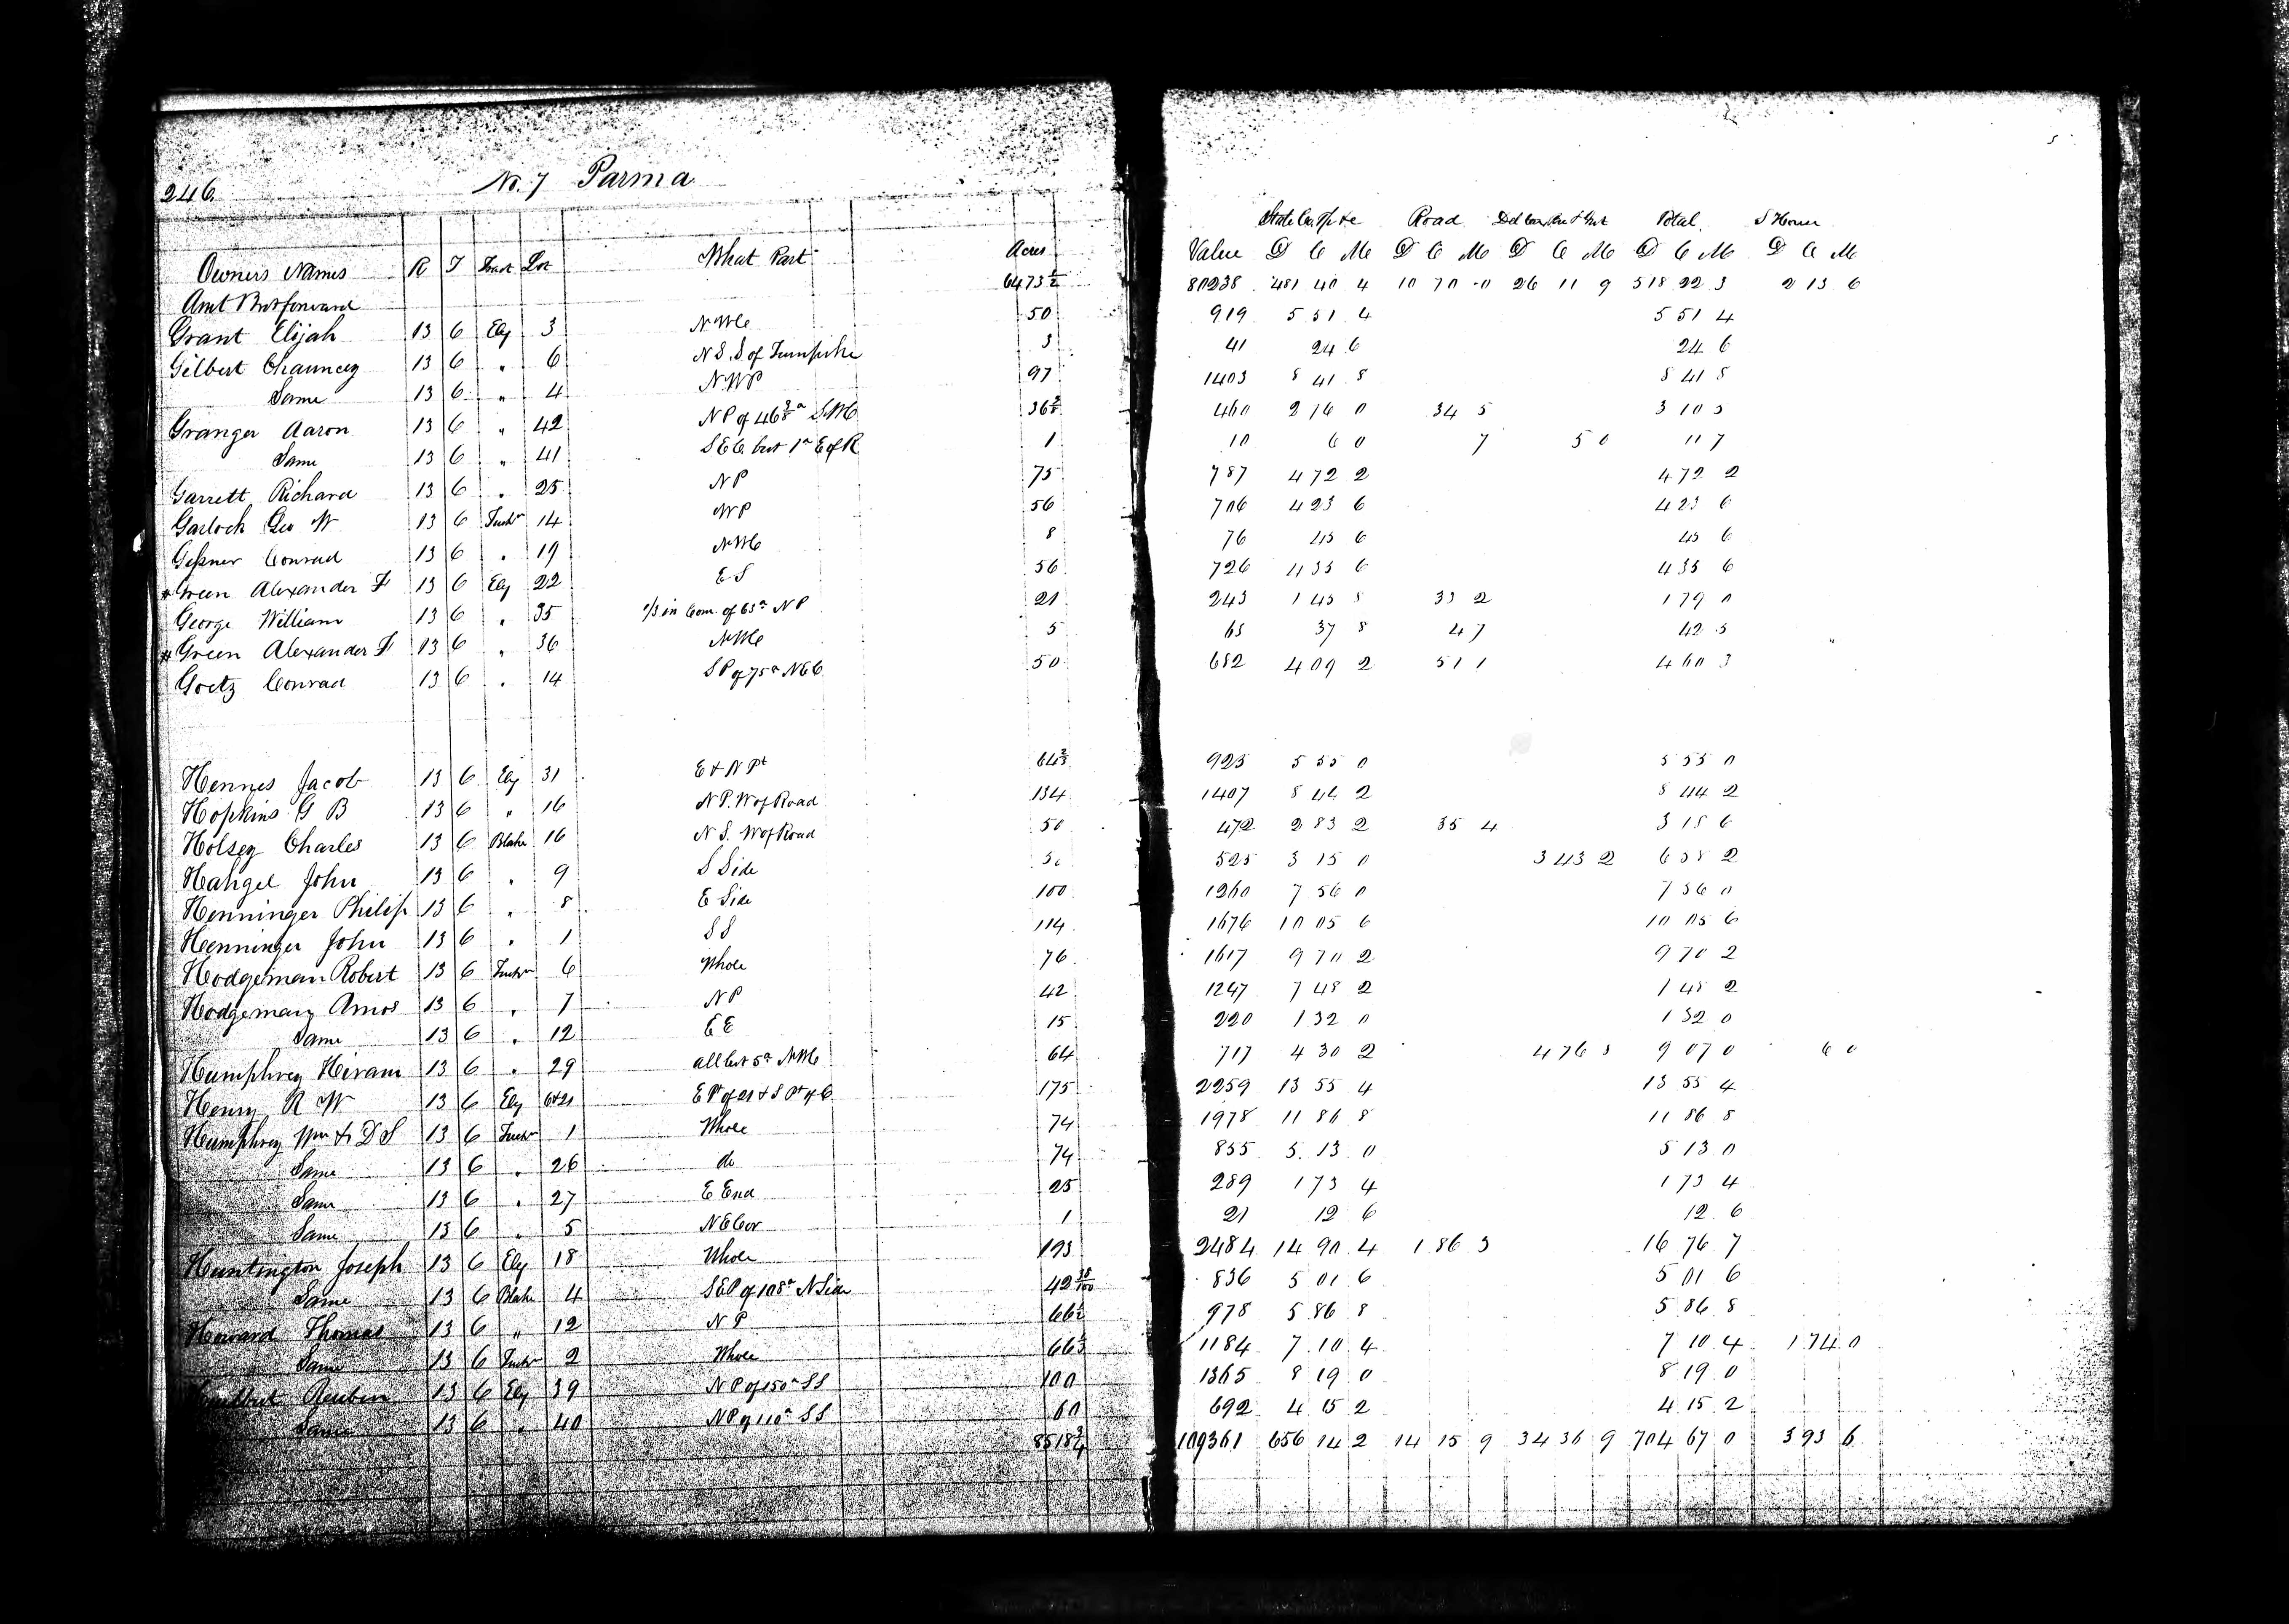 246 No. 7 Parma
State Co. Tp &c Road Total S House
Owners Names R T Tract Lot What Part Acres Value D C M D C M D C M D C M D C M
Amt Brot forward 6473½ 80238 481 40 4 10 70 0 26 11 9 518 22 3 2 13 6
Grant Elijah 13 6 Ely 3 NWC 50 919 5 51 4 5 51 4
Gilbert Chauncey 13 6 " 6 N S. S of Turnpike 3 41 24 6 24 6
Same 13 6 " 4 NWP 97 1403 8 41 8 8 41 8
Granger Aaron 13 6 " 42 NP of 46⅜a SWC 36⅜ 460 2 76 0 34 5 3 10 5
Same 13 6 " 41 SEC but 1a E of R 1 10 6 0 7 5 0 11 7
Garrett Richard 13 6 " 25 NP 75 787 4 72 2 4 72 2
Garlock Geo W 13 6 Tuckr 14 WP 56 706 4 23 6 4 23 6
Gessner Conrad 13 6 " 19 NWC 8 76 45 6 45 6
* Green Alexander F 13 6 Ely 22 E S 56 726 4 35 6 4 35 6
George William 13 6 " 35 1/3 in Com. of 63a NP 21 243 1 45 8 33 2 1 79 0
* Green Alexander F 13 6 " 36 NWC 5 63 37 8 4 7 42 5
Goetz Conrad 13 6 " 14 SP of 75a NEC 50 682 4 09 2 51 1 4 60 3
Hennes Jacob 13 6 Ely 31 E & N Pt 64⅔ 925 5 55 0 5 55 0
Hopkins G B 13 6 " 16 NP. W of Road 134 1407 8 44 2 8 44 2
Holsey Charles 13 6 Blake 16 N S. W of Road 50 472 2 83 2 35 4 3 18 6
Hahgel John 13 6 " 9 S Side 50 525 3 15 0 3 43 2 6 58 2
Henninger Philip 13 6 " 8 E Side 100 1260 7 56 0 7 56 0
Henninger John 13 6 " 1 S S 114 1676 10 05 6 10 05 6
Hodgeman Robert 13 6 Tuckr 6 Whole 76 1617 9 70 2 9 70 2
Hodgeman Amos 13 6 " 7 NP 42 1247 7 48 2 7 48 2
Same 13 6 " 12 E E 15 220 1 32 0 1 32 0
Humphrey Hiram 13 6 " 29 all but 5a NWC 64 717 4 30 2 4 76 8 9 07 0 6 0
Henry R W 13 6 Ely 6&21 E Pt of 21 & S Pt of 6 175 2259 13 55 4 13 55 4
Humphrey Wm & D S 13 6 Tuckr 1 Whole 74 1978 11 86 8 11 86 8
Same 13 6 " 26 do 74 855 5 13 0 5 13 0
Same 13 6 " 27 E End 25 289 1 73 4 1 73 4
Same 13 6 " 5 NE Cor 1 21 12 6 12 6
Huntington Joseph 13 6 Ely 18 Whole 193 2484 14 90 4 1 86 3 16 76 7
Same 13 6 Blake 4 SEP of 108a N Side 42 38/100 836 5 01 6 5 01 6
Howard Thomas 13 6 " 12 NP 66½ 978 5 86 8 5 86 8
Same 13 6 Tuckr 2 Whole 66½ 1184 7 10 4 7 10 4 1 74 0
Reuben 13 6 Ely 39 NP of 150a SS 100 1365 8 19 0 8 19 0
Same 13 6 " 40 NP of 110a SS 60 692 4 15 2 4 15 2
8518¾ 109361 656 14 2 14 15 9 34 36 9 704 67 0 3 93 6